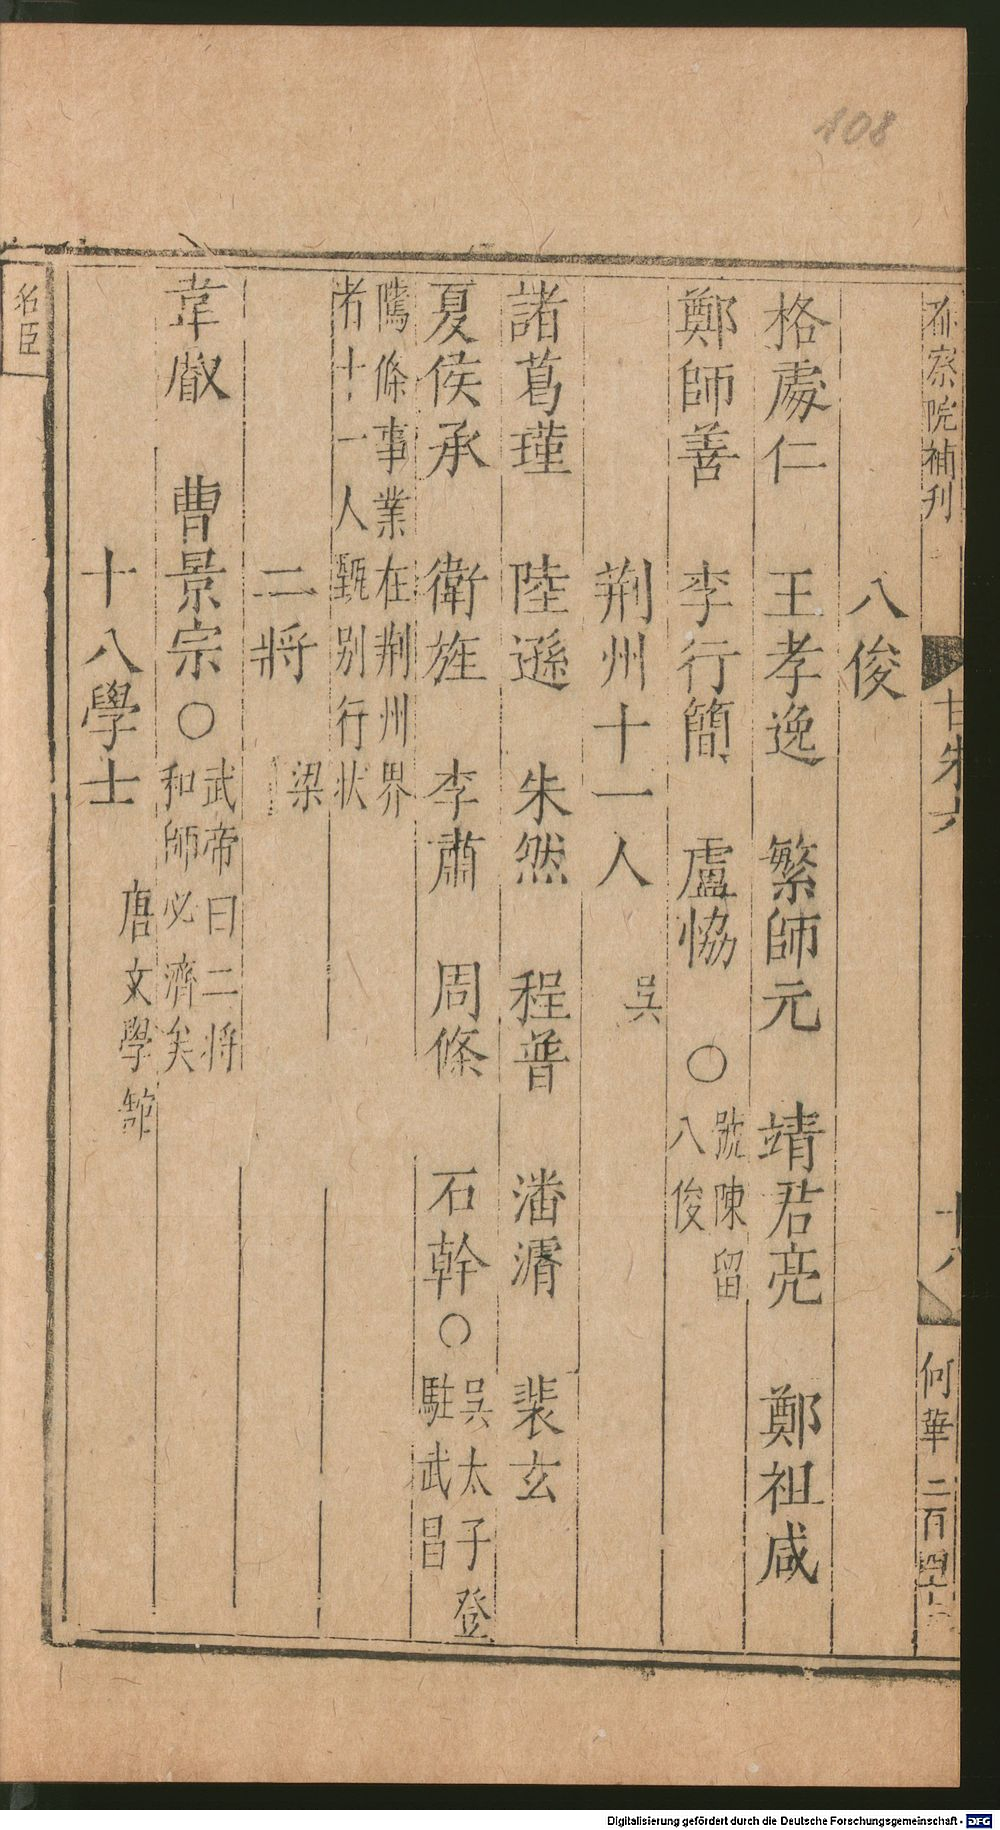 108
都察院補刊
十八
何華 二百四十
八俊
格處仁 王孝逸 繁師元 靖君亮 鄭祖咸
鄭師善 李行簡 盧恊 ○ 號陳留
八俊
荆州十一人 吳
諸葛瑾 陸遜 朱然 程普 潘濬 裴玄
夏侯承 衛旌 李肅 周條 石幹○ 吳太子登
駐武昌
隲條事業在荆州界
者十一人甄别行状
二将 梁
韋叡 曹景宗○ 武帝曰二将
和師必濟矣
十八學士 唐文學館
名臣
Digitalisierung gefördert durch die Deutsche Forschungsgemeinschaft - DFG